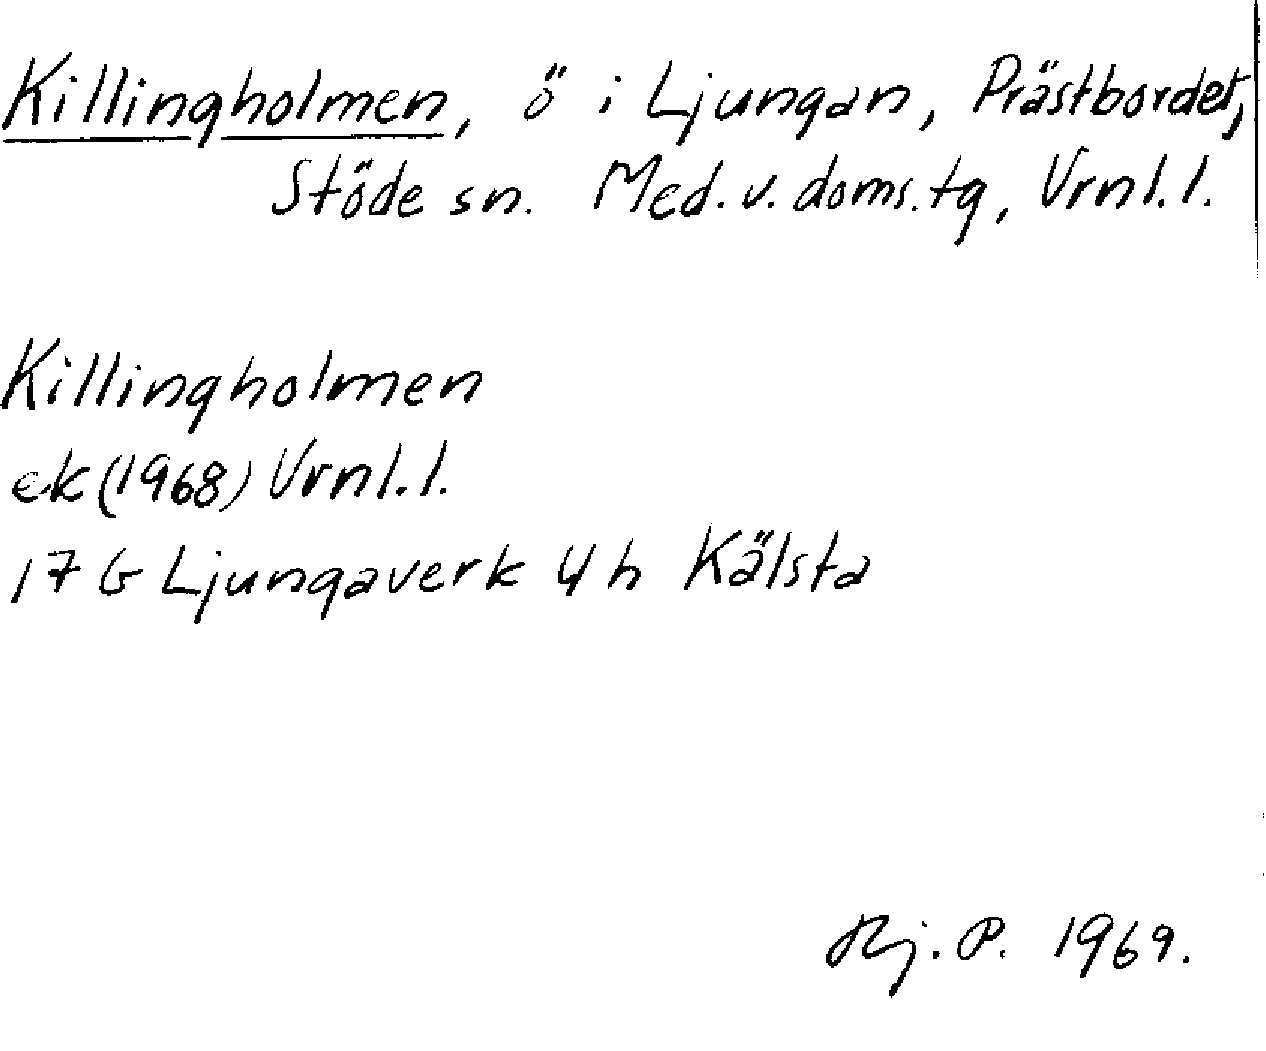 Killingholmen, ö i Ljungan, Prästbordet,
Stöde sn. Med. v. doms. tg, Vrnl. l.
Killingholmen
ek (1968) Vrnl. l.
17 G Ljungaverk 4 h Kälsta
Hj. P. 1969.